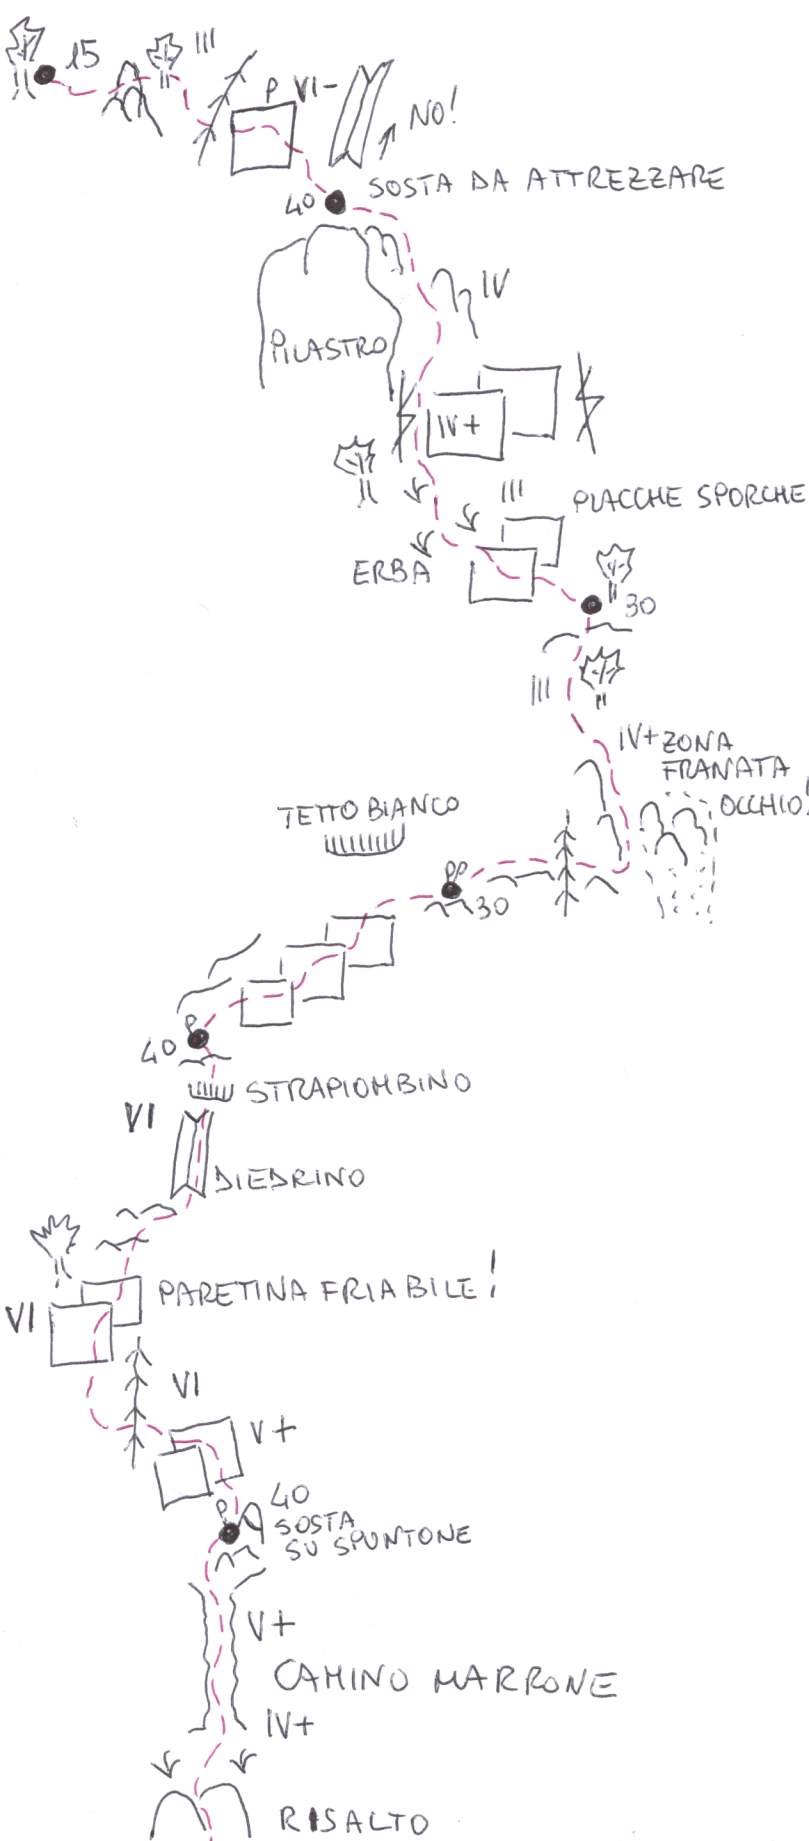 15
III
P VI-
NO!
SOSTA DA ATTREZZARE
40
IV
PILASTRO
IV+
III
PLACCHE SPORCHE
ERBA
30
III
IV+ ZONA
FRANATA
OCCHIO!
TETTO BIANCO
PP
30
P
40
STRAPIOMBINO
VI
DIEDRINO
PARETINA FRIABILE!
VI
VI
V+
40
P
SOSTA
SU SPUNTONE
V+
CAMINO MARRONE
IV+
RISALTO